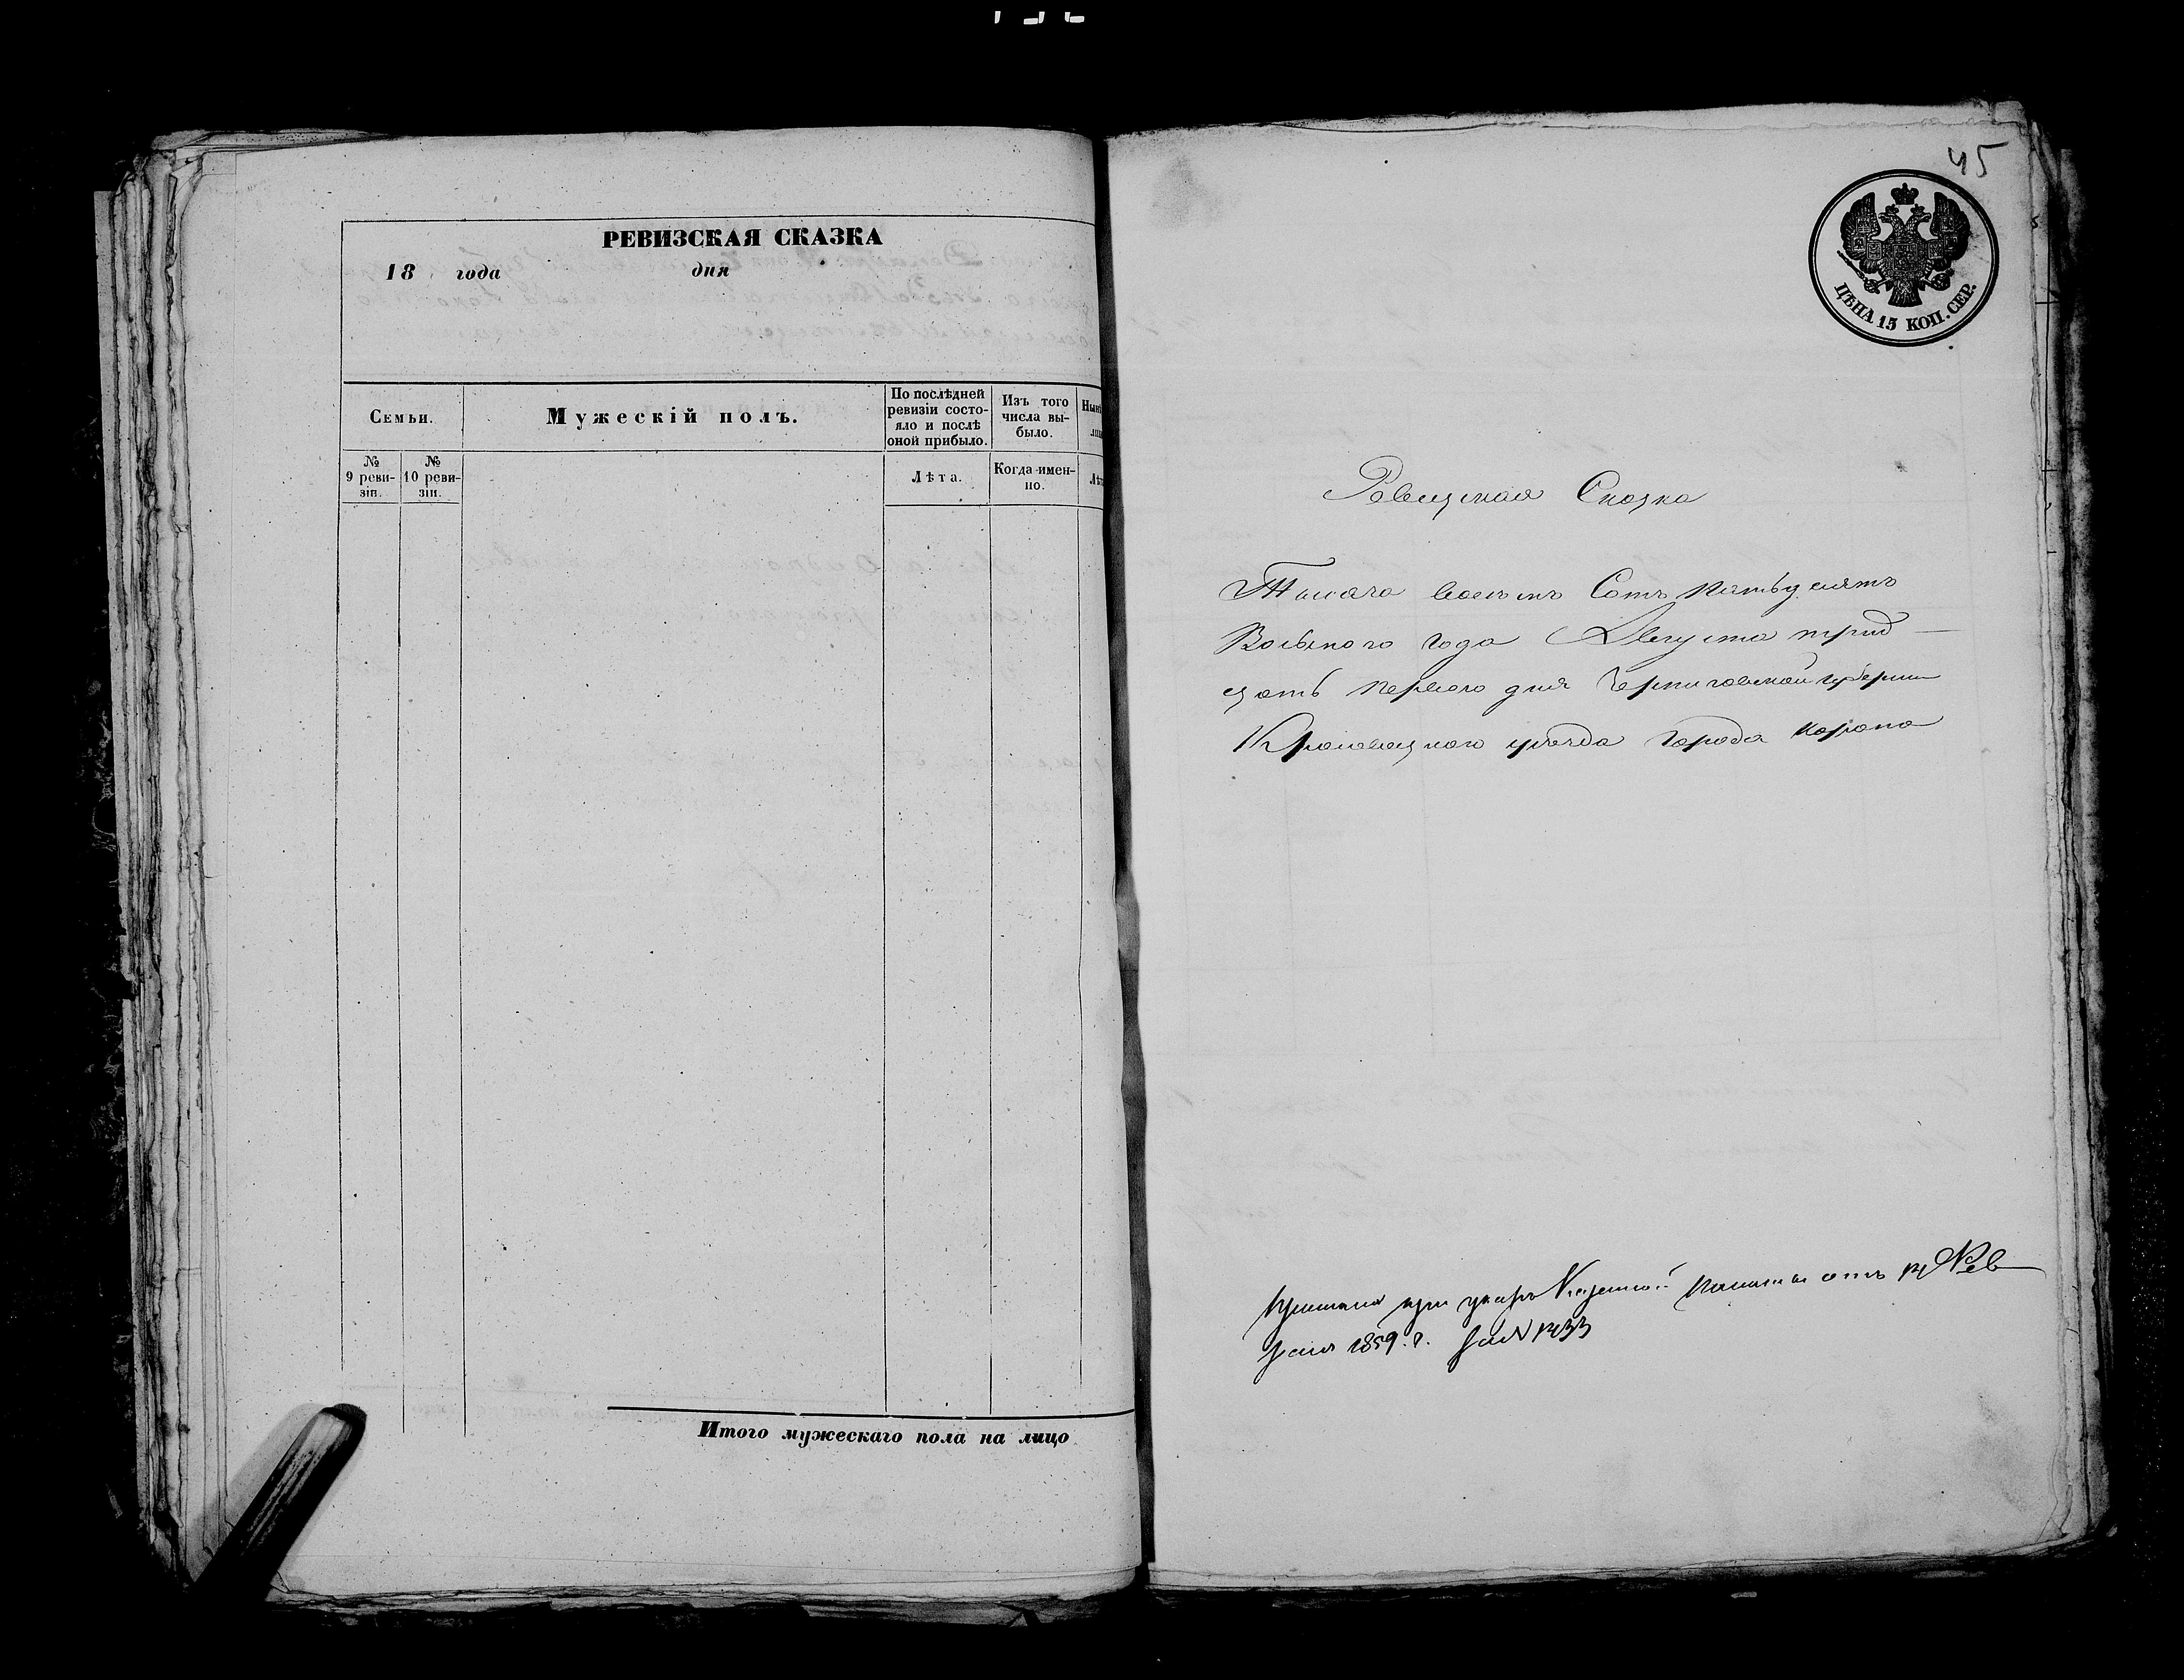 РЕВИЗСКАЯ СКАЗКА
18 года дня
Семьи.
Мужескій полъ.
По послѣдней
ревизіи состо-
яло и послѣ
оной прибыло.
Изъ того
числа вы-
было.
№
9 реви-
зіи.
№
10 реви-
зіи.
Лѣта.
Когда имен-
но.
Итого мужескаго пола на лицо
45
ЦѢНА 15 КОП. СЕР.
Ревизская Сказка
Тысяча восемъ Сотъ пятьдесятъ
Восьмого года Августа трид-
цать первого дня Черниговской губернии
Кролевецкого уезда города Коропа
при указе Казенной Палаты отъ
1859 г. за №